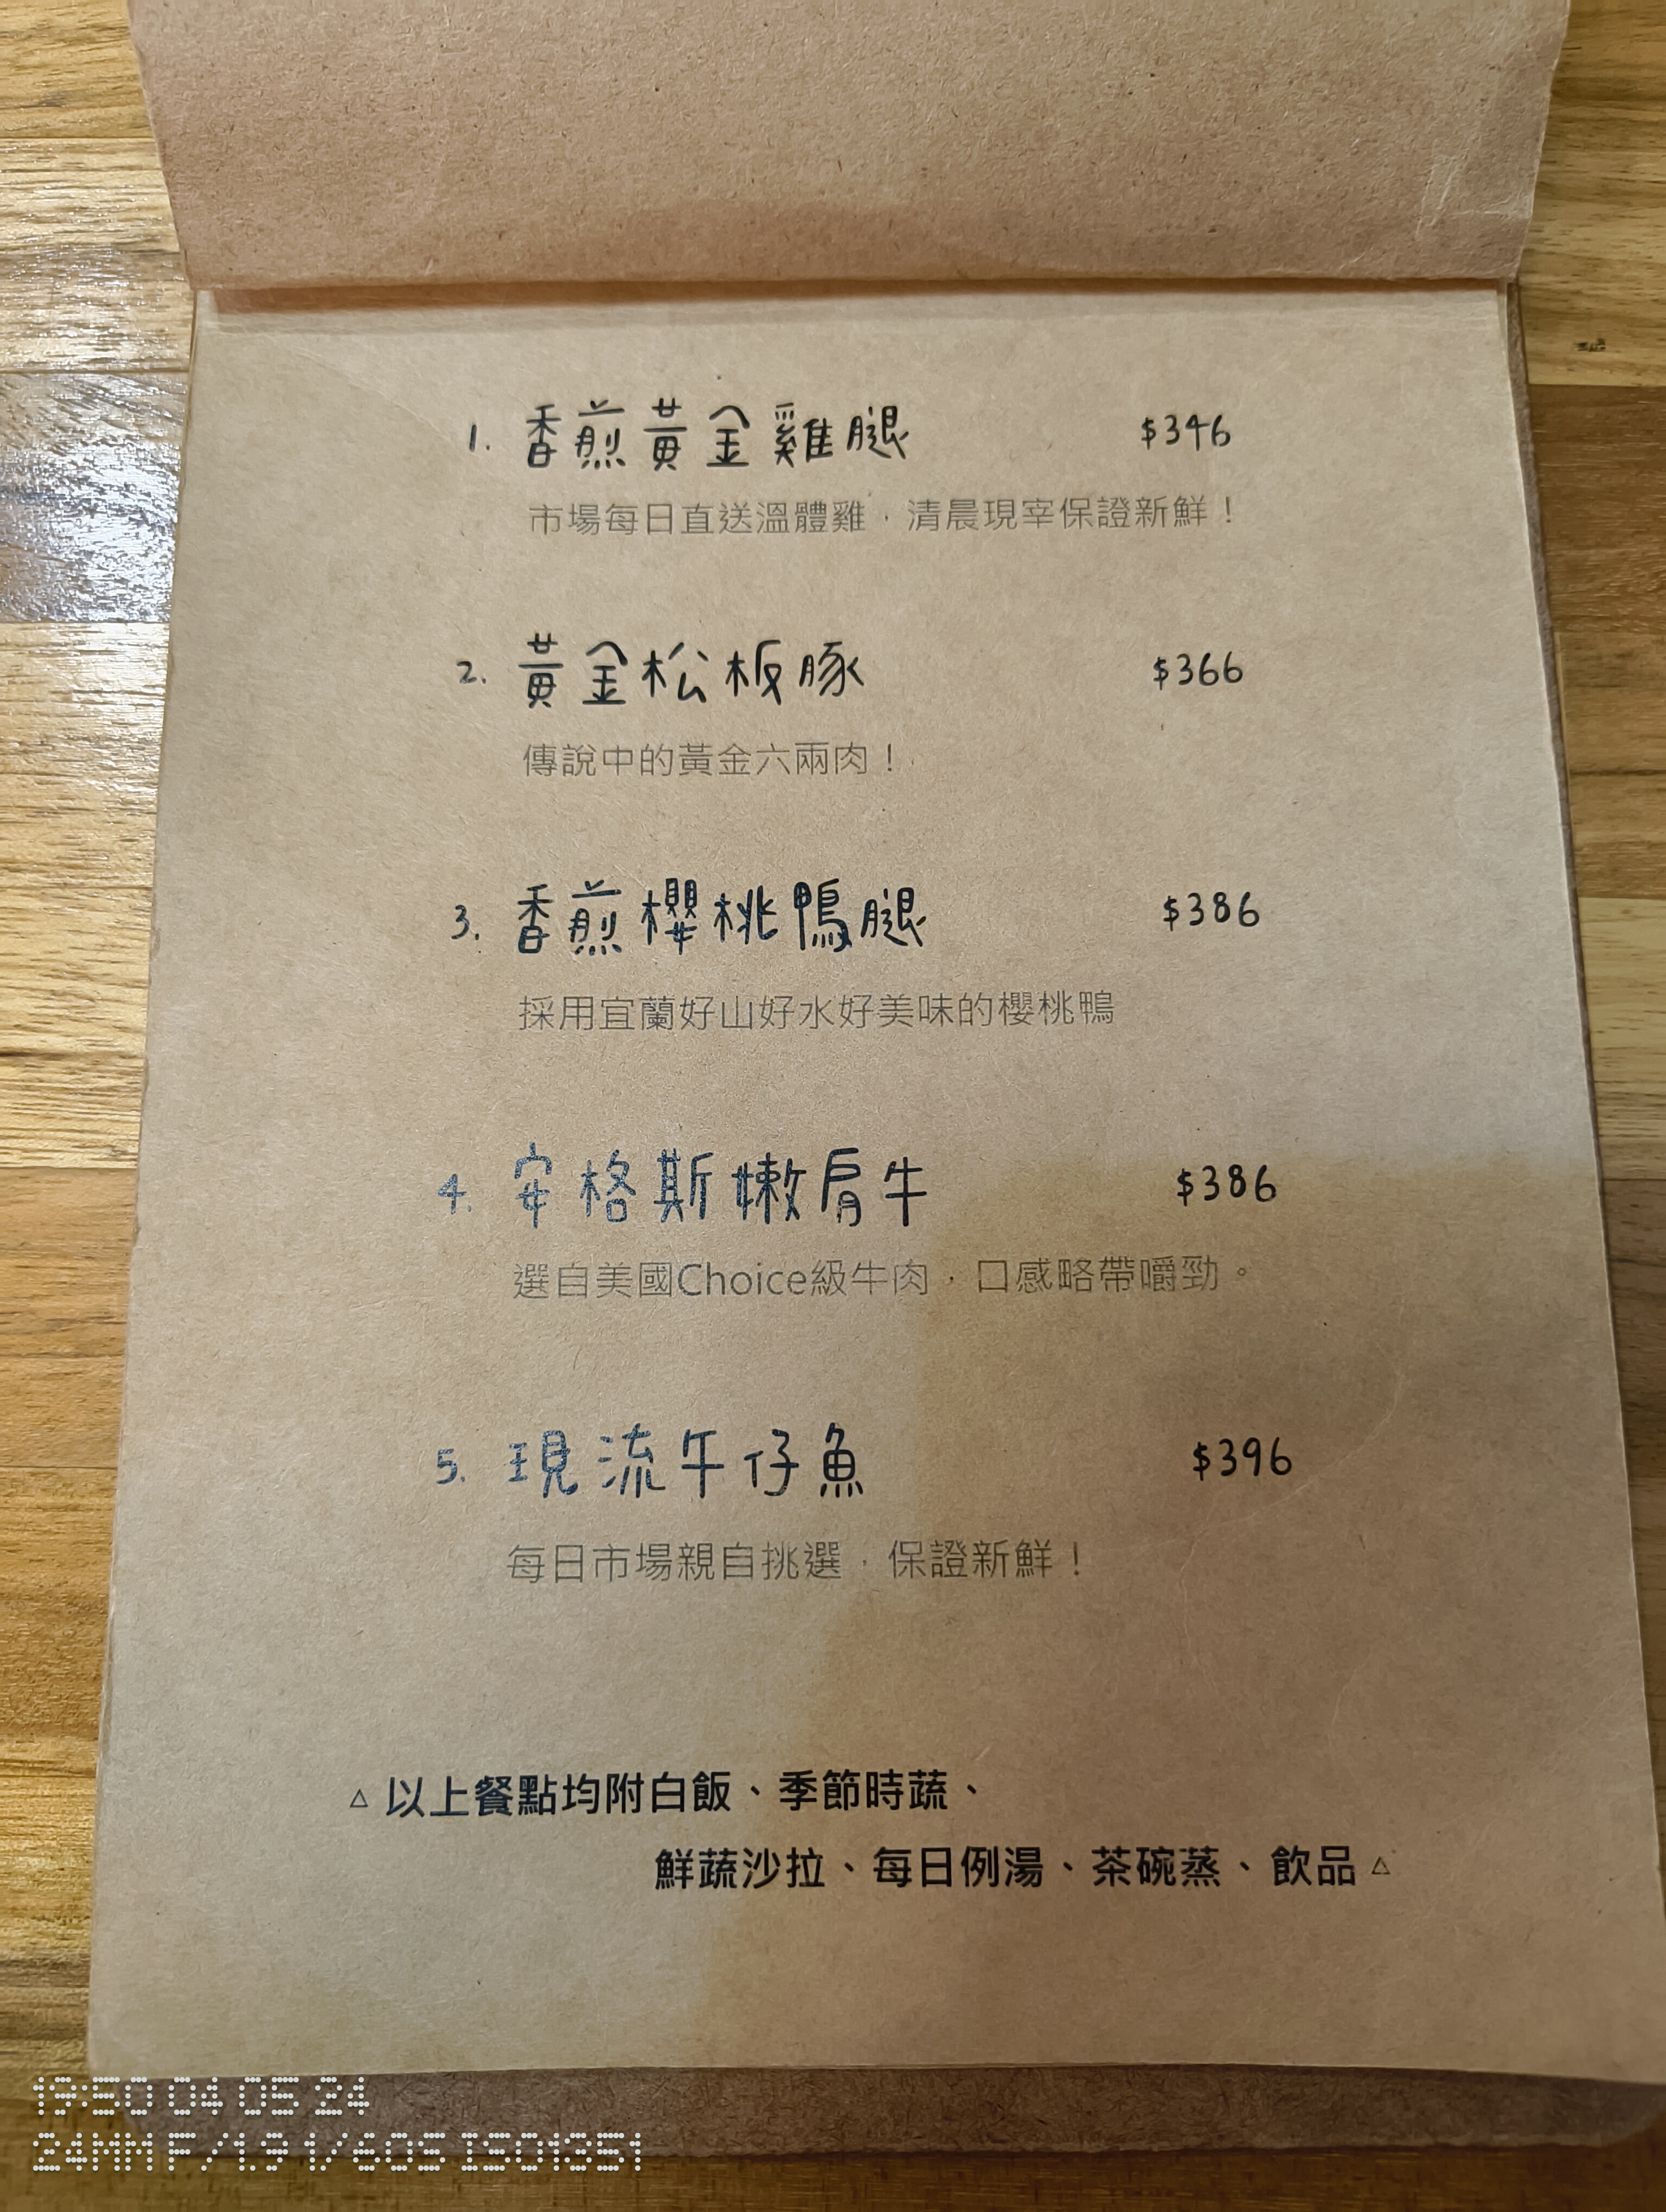 1. 香煎黃金雞腿 $346
市場每日直送溫體雞，清晨現宰保證新鮮！
2. 黃金松板豚 $366
傳說中的黃金六兩肉！
3. 香煎櫻桃鴨腿 $386
採用宜蘭好山好水好美味的櫻桃鴨
4. 安格斯嫩肩牛 $386
選自美國Choice級牛肉，口感略帶嚼勁。
5. 現流午仔魚 $396
每日市場親自挑選，保證新鮮！
△ 以上餐點均附白飯、季節時蔬、
鮮蔬沙拉、每日例湯、茶碗蒸、飲品 △
19:50 04 05 24
24MM F/1.9 1/60S ISO1351